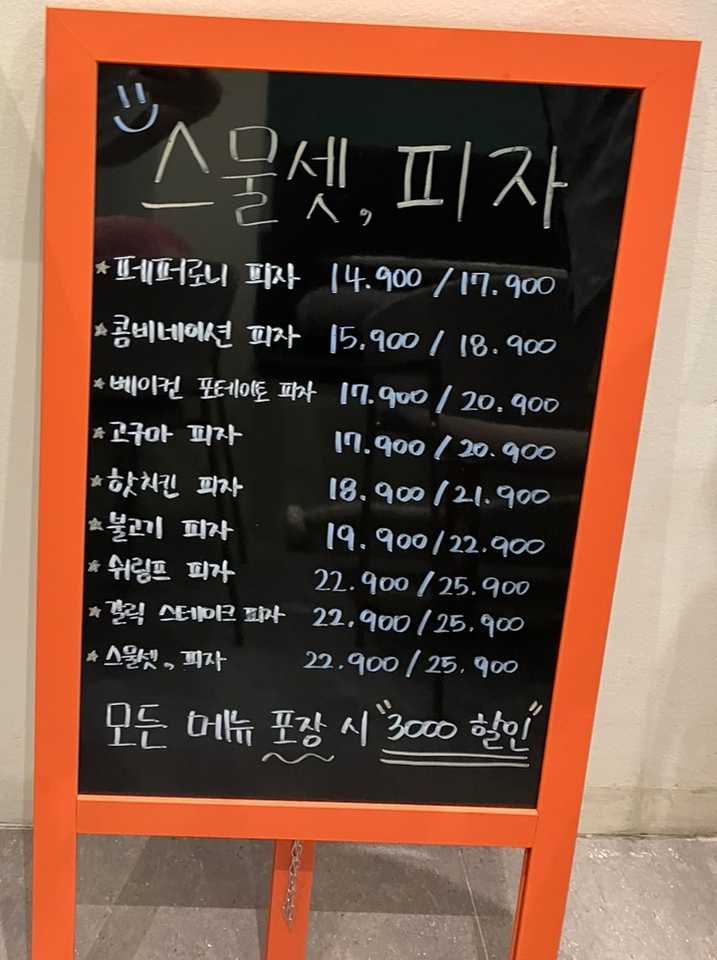 스물셋, 피자
페퍼로니 피자 14.900 / 17.900
콤비네이션 피자 15.900 / 18.900
베이컨 포테이토 피자 17.900 / 20.900
고구마 피자 17.900 / 20.900
핫치킨 피자 18.900 / 21.900
불고기 피자 19.900 / 22.900
쉬림프 피자 22.900 / 25.900
갈릭 스테이크 피자 22.900 / 25.900
스물셋, 피자 22.900 / 25.900
모든 메뉴 포장 시 "3000 할인"